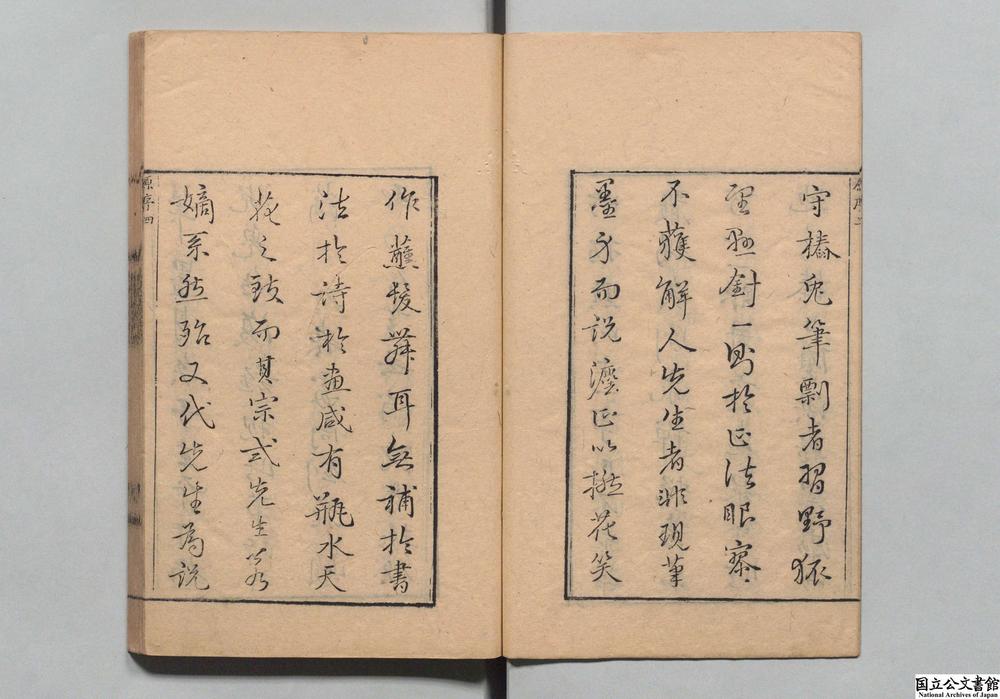 守樁兔筆剽者習野狐
聖懸針一則於正法眼寮
不獲解人先生者非現筆
墨身而說塵正以拈花笑
作蘸髮舞耳無補於書
法於詩於畫咸有瓶水天
花之致而其宗式先生若
嫡系然殆又代先生為說
原序四
国立公文書館
National Archives of Japan